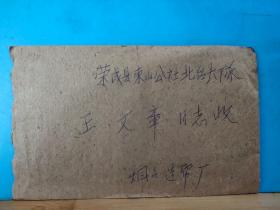 荣成县东山公社北谷大队
王文章同志收
烟台造纸厂